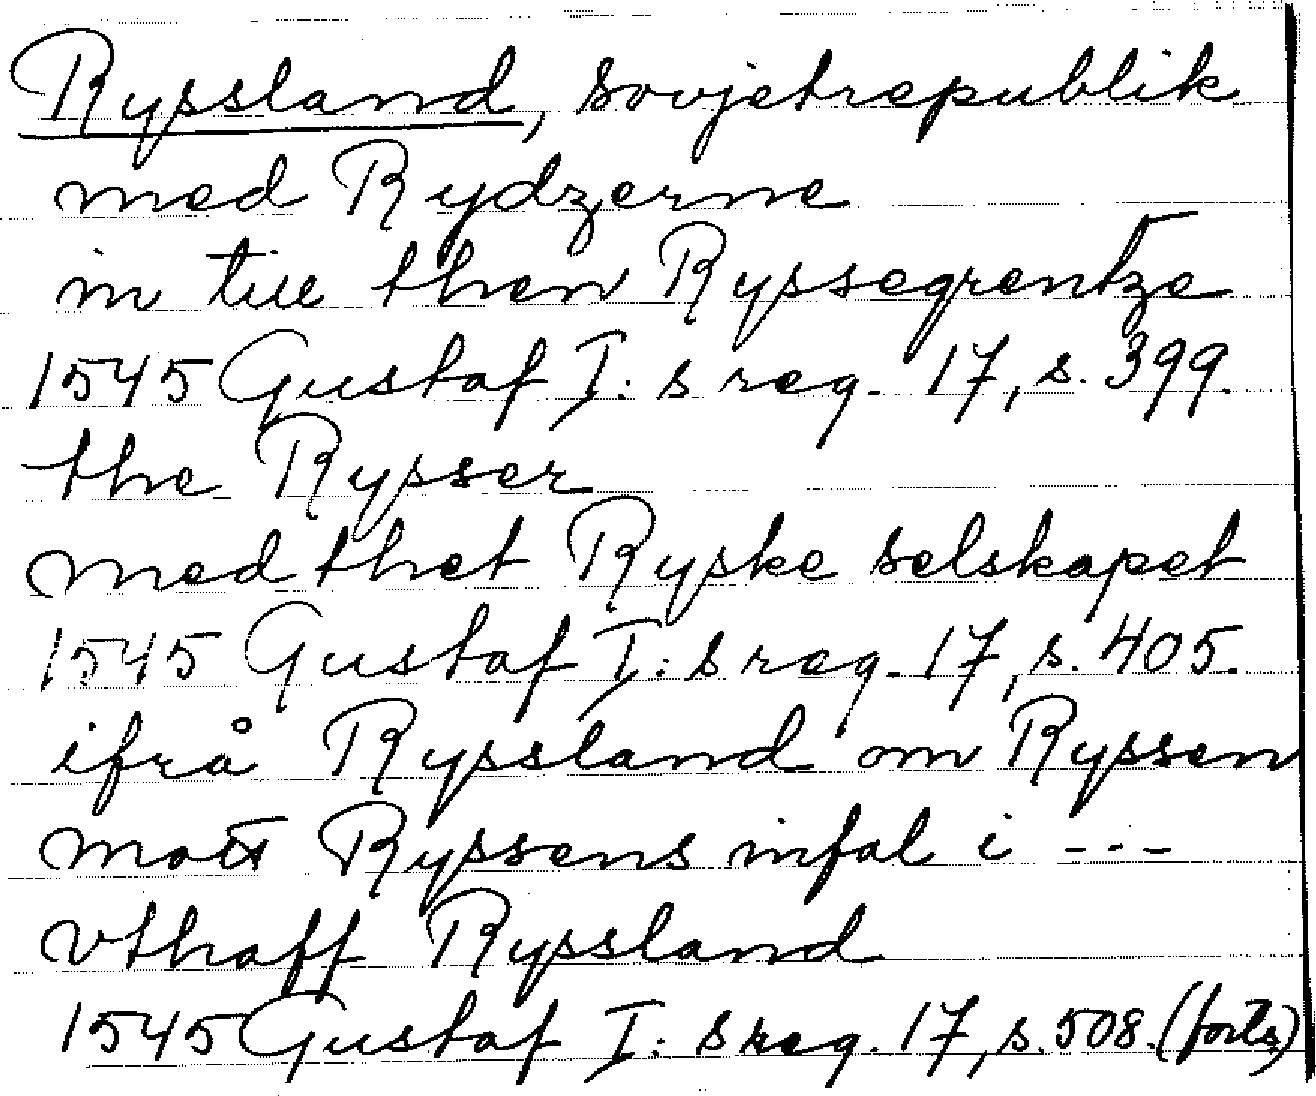 Ryssland, Sovjetrepublik
med Rydzerne
in till then Ryssegrentze
1545 Gustaf I:s reg. 17, s. 399.
the Rysser
med thet Ryske selskapet
1545 Gustaf I:s reg. 17, s. 405.
ifrå Ryssland om Ryssen
mott Ryssens infal i ---
vthaff Ryssland
1545 Gustaf I:s reg. 17, s. 508. (forts)